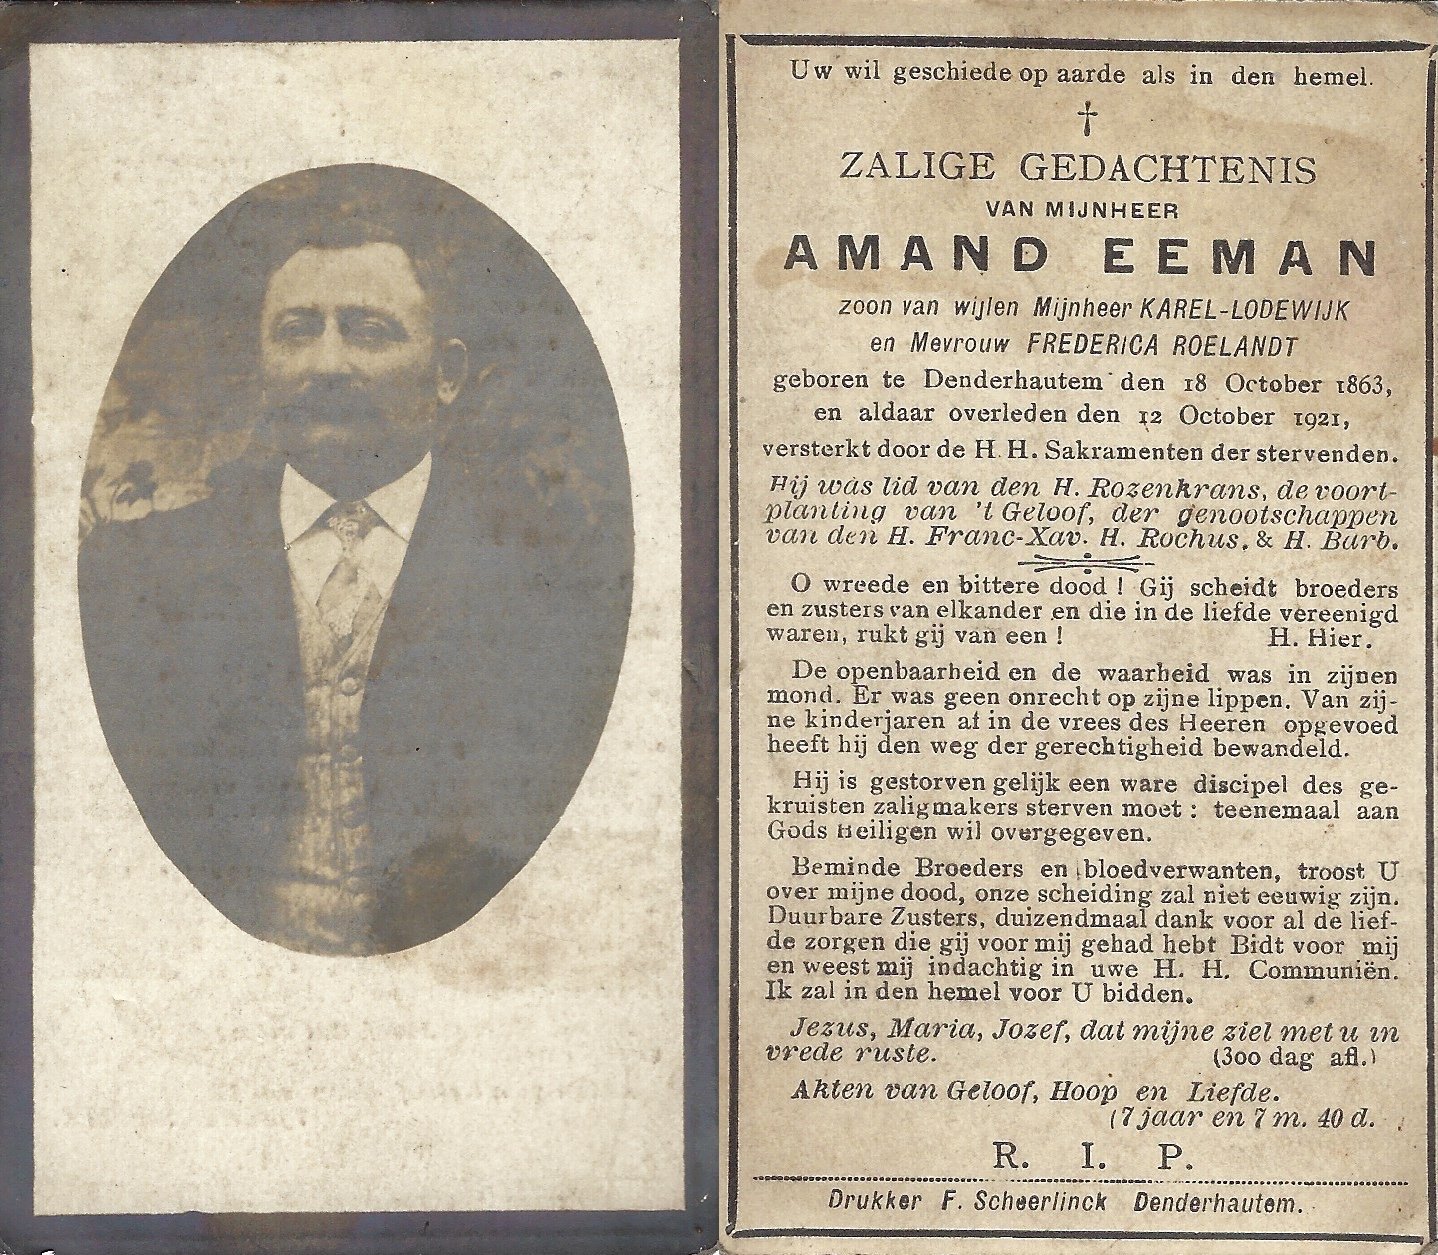 Uw wil geschiede op aarde als in den hemel.
†
ZALIGE GEDACHTENIS
VAN MIJNHEER
AMAND EEMAN
zoon van wijlen Mijnheer KAREL-LODEWIJK
en Mevrouw FREDERICA ROELANDT
geboren te Denderhautem den 18 October 1863,
en aldaar overleden den 12 October 1921,
versterkt door de H. H. Sakramenten der stervenden.
Hij was lid van den H. Rozenkrans, de voort-
planting van 't Geloof, der genootschappen
van den H. Franc-Xav. H. Rochus, & H. Barb.
O wreede en bittere dood ! Gij scheidt broeders
en zusters van elkander en die in de liefde vereenigd
waren, rukt gij van een ! H. Hier.
De openbaarheid en de waarheid was in zijnen
mond. Er was geen onrecht op zijne lippen. Van zij-
ne kinderjaren af in de vrees des Heeren opgevoed
heeft hij den weg der gerechtigheid bewandeld.
Hij is gestorven gelijk een ware discipel des ge-
kruisten zaligmakers sterven moet : teenemaal aan
Gods Heiligen wil overgegeven.
Beminde Broeders en bloedverwanten, troost U
over mijne dood, onze scheiding zal niet eeuwig zijn.
Duurbare Zusters, duizendmaal dank voor al de lief-
de zorgen die gij voor mij gehad hebt Bidt voor mij
en weest mij indachtig in uwe H. H. Communiën.
Ik zal in den hemel voor U bidden.
Jezus, Maria, Jozef, dat mijne ziel met u in
vrede ruste. (300 dag afl.)
Akten van Geloof, Hoop en Liefde.
(7 jaar en 7 m. 40 d.
R. I. P.
Drukker F. Scheerlinck Denderhautem.